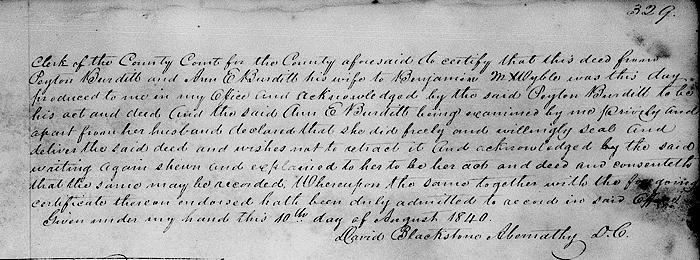 329.
Clerk of the County Court for the County aforesaid do certify that this deed from
Peyton Burditt and Ann E Burditt his wife to Benjamin was this day
produced to me in my Office and acknowledged by the said Peyton Burditt to be
his act and deed And the said Ann E Burditt being examined by me privily and
apart from her husband declared that she did freely and willingly seal and
deliver the said deed and wishes not to retract it And acknowledged by the said
writing again shewn and explained to her to be her act and deed and consenteth
that the same may be recorded. Whereupon the same together with the foregoing
certificate thereon endorsed hath been duly admitted to record in said Office
Given under my hand this 10th day of August 1840.
David Blackstone Abernathy D.C.